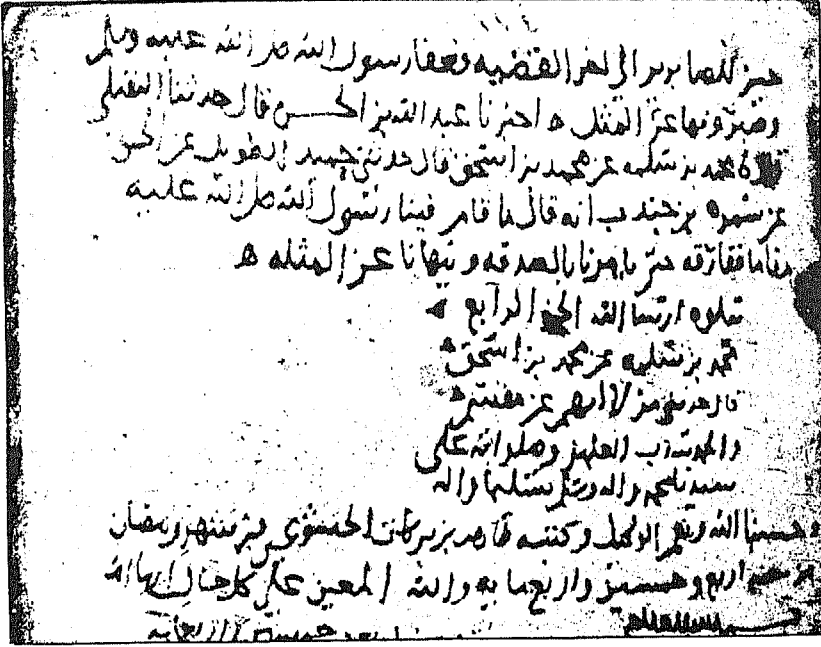 ١١٤
خير للصابرين الى اخر القضيه فعفا رسول الله صلى الله عليه وسلم
وصبر ونها عن المثل ه اخبرنا عبد الله بن الحسن قال حدثنا النفيلي
محمد بن سلمه عن محمد بن اسحق قال حدثني حميد الطويل عن الحسن
عن سمره بن جندب انه قال ما قام فينا رسول الله صلى الله عليه
مقاما ففارقه حتى يامرنا بالصدقه وينهانا عن المثله ه
يتلوه ان شا الله الجز الرابع
محمد بن سلمه عن محمد بن اسحق
قال حدثني من لا اتهم عن مقسم
والحمد لله رب العلمين وصلواته على
سيدنا محمد واله وسلم تسليما
وحسبنا الله ونعم الوكيل وكتبه طاهر بن بركات الخشوعي في شهر رمضان
من سنه اربع وخمسين واربع مايه والله المعين على كل حال